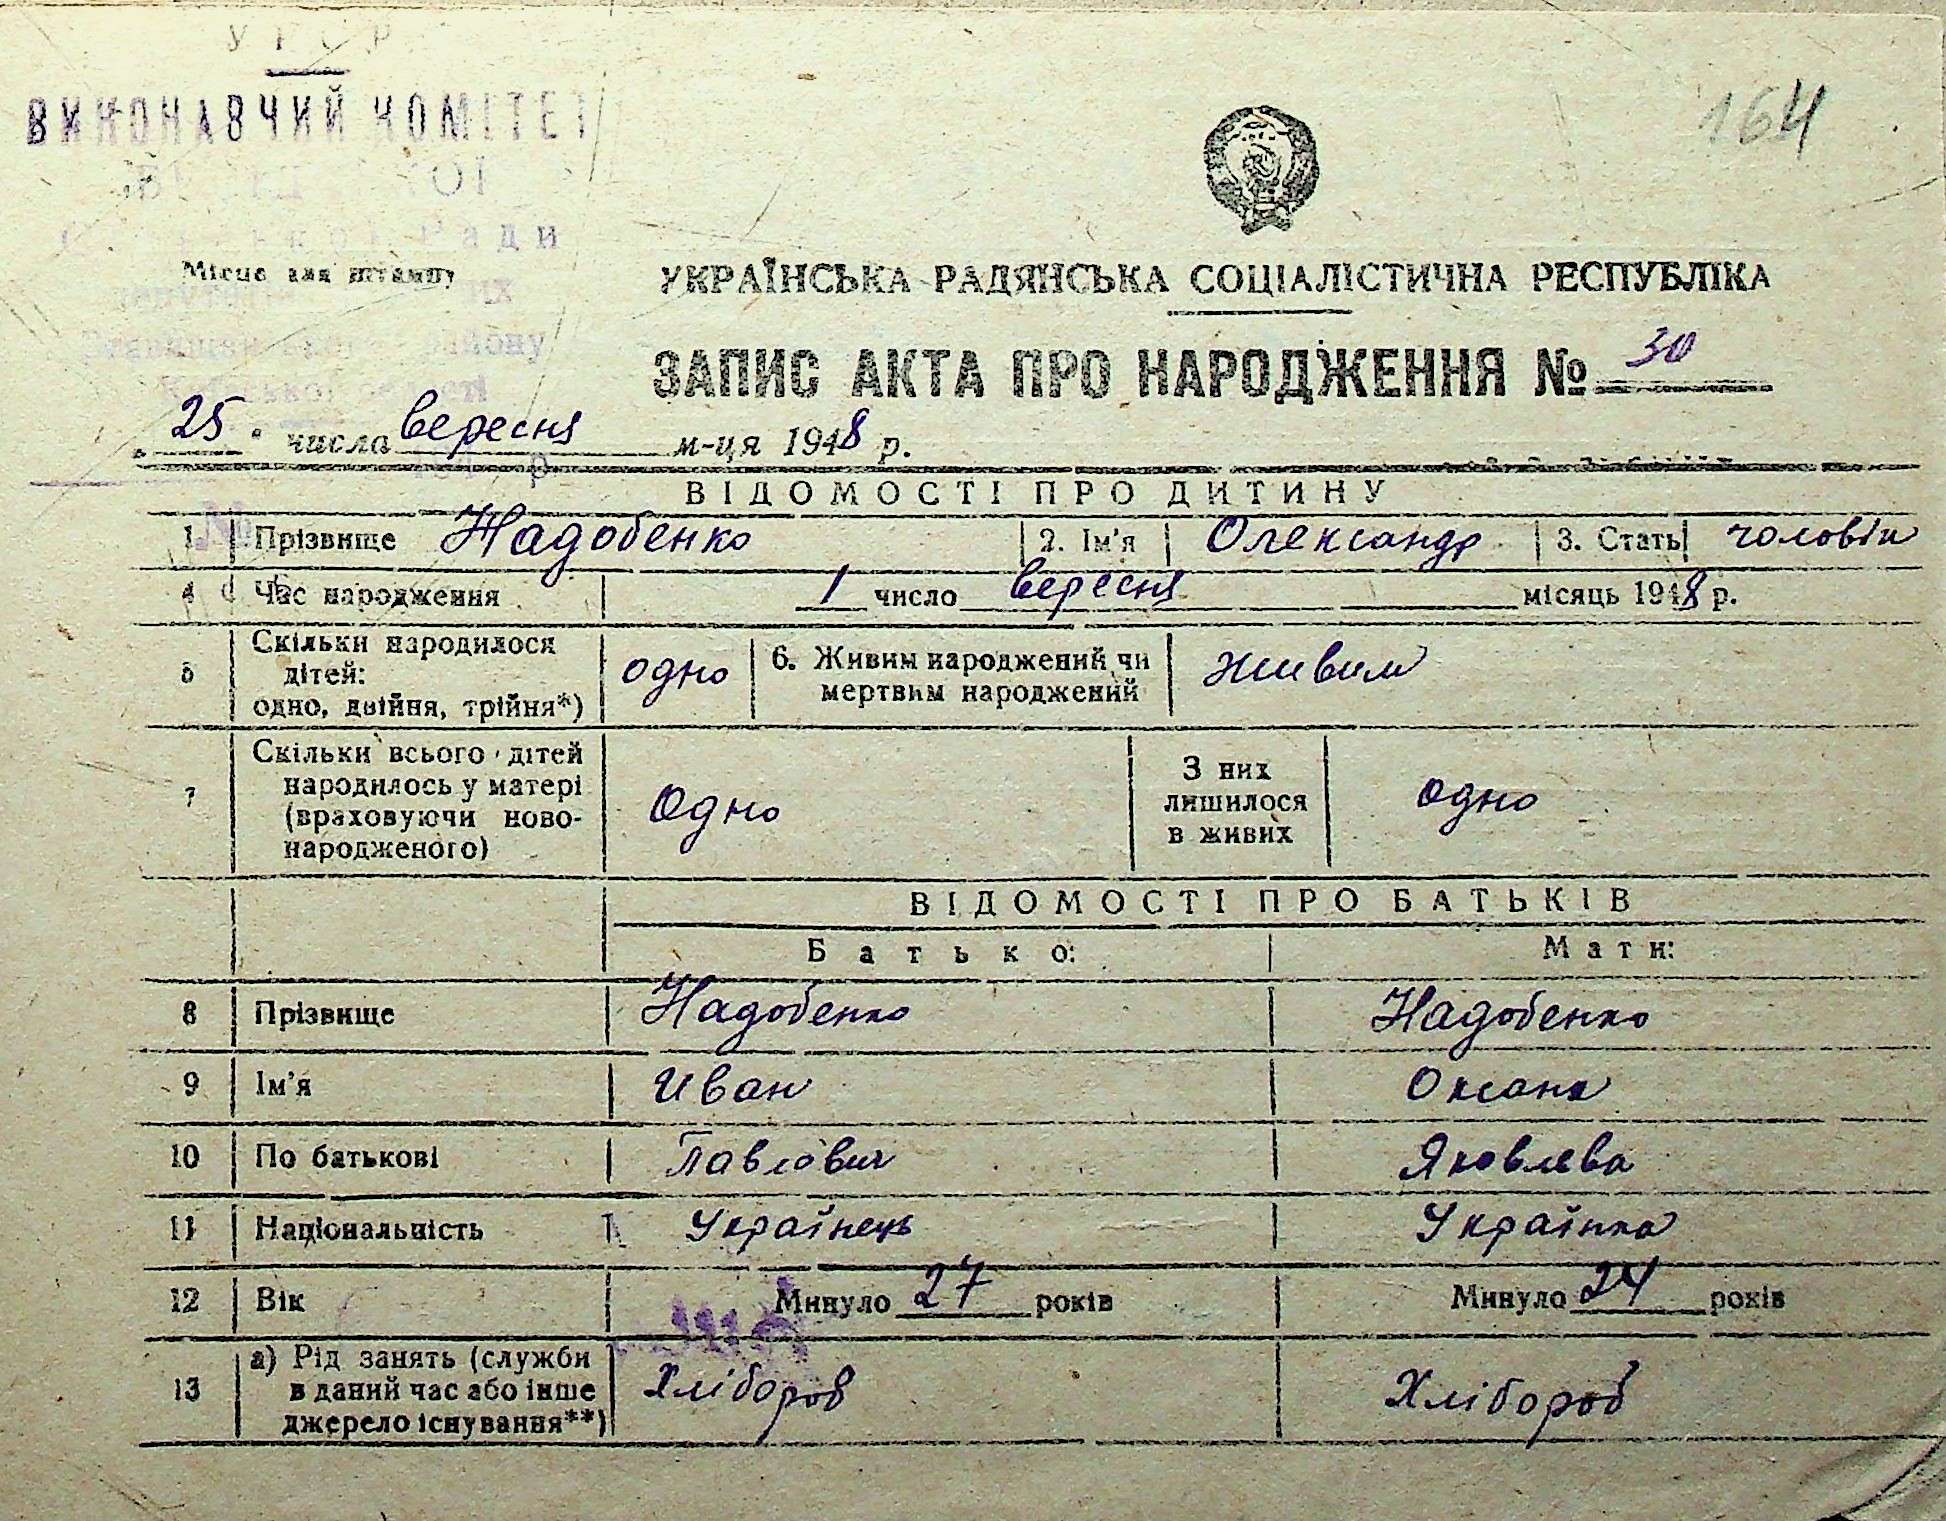 УРСР
ВИКОНАВЧИЙ КОМІТЕТ
Ради
Місце для штампу
району
164
УКРАЇНСЬКА РАДЯНСЬКА СОЦІАЛІСТИЧНА РЕСПУБЛІКА
ЗАПИС АКТА ПРО НАРОДЖЕННЯ № 30
25 числа вересня м-ця 1948 р.
ВІДОМОСТІ ПРО ДИТИНУ
1 Прізвище Надобенко 2. Ім'я Олександр 3. Стать чоловіч
4 Час народження 1 число вересня місяць 1948 р.
Скільки народилося
5 дітей: одно 6. Живим народжений чи живим
одно, двійня, трійня*) мертвим народжений
Скільки всього дітей
народилось у матері З них
7 (враховуючи ново- одно лишилося одно
народженого) в живих
ВІДОМОСТІ ПРО БАТЬКІВ
Батько: Мати:
8 Прізвище Надобенко Надобенко
9 Ім'я Иван Оксана
10 По батькові Павлович Яковлева
11 Національність Українець Українка
12 Вік Минуло 27 років Минуло 24 років
а) Рід занять (служби
13 в даний час або інше Хлібороб Хлібороб
джерело існування**)